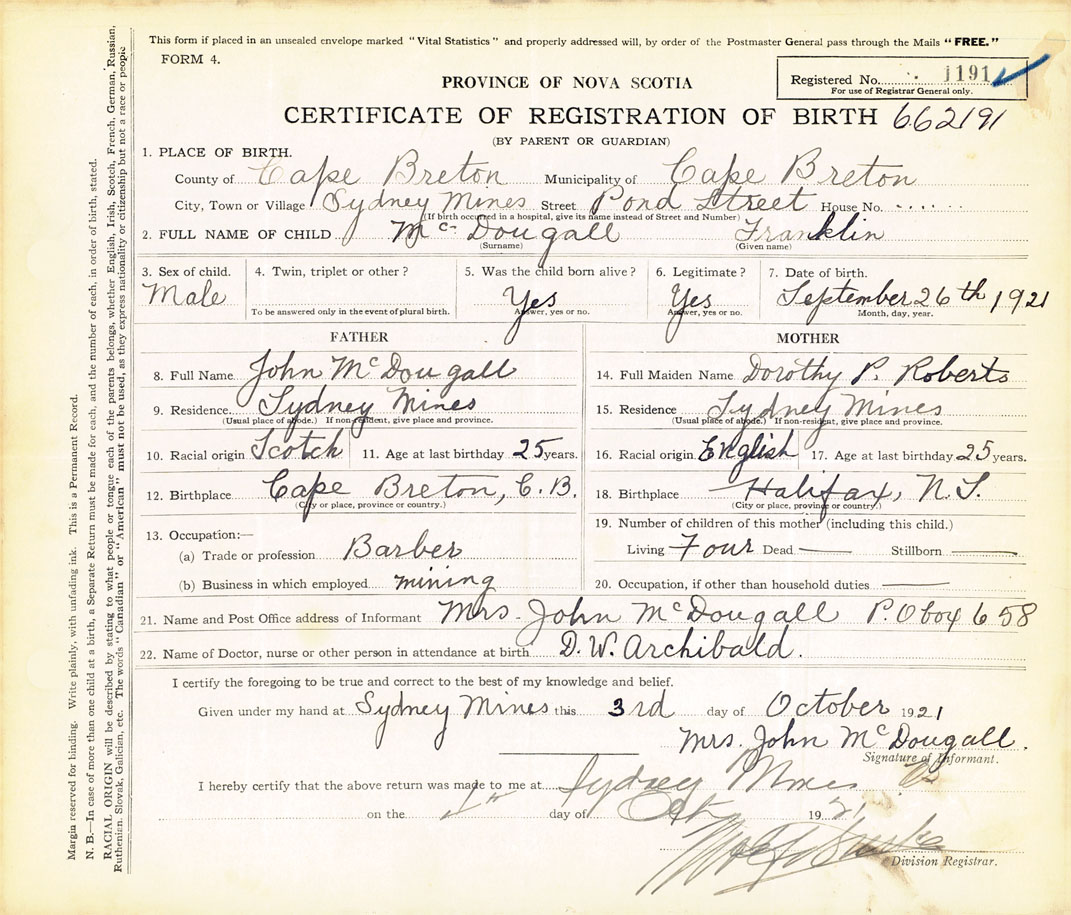 This form if placed in an unsealed envelope marked "Vital Statistics" and properly addressed will, by order of the Postmaster General pass through the Mails "FREE."
FORM 4.
Registered No. 1191
For use of Registrar General only.
PROVINCE OF NOVA SCOTIA
CERTIFICATE OF REGISTRATION OF BIRTH 662191
(BY PARENT OR GUARDIAN)
1. PLACE OF BIRTH.
County of Cape Breton Municipality of Cape Breton
City, Town or Village Sydney Mines Street Pond Street House No.
(If birth occurred in a hospital, give its name instead of Street and Number)
2. FULL NAME OF CHILD McDougall Franklin
(Surname) (Given name)
3. Sex of child. 4. Twin, triplet or other? 5. Was the child born alive? 6. Legitimate? 7. Date of birth.
Male Yes Yes September 26th 1921
To be answered only in the event of plural birth. Answer, yes or no. Answer, yes or no. Month, day, year.
FATHER
8. Full Name John McDougall
9. Residence Sydney Mines
(Usual place of abode.) If non-resident, give place and province.
10. Racial origin Scotch 11. Age at last birthday 25 years.
12. Birthplace Cape Breton, C.B.
(City or place, province or country.)
13. Occupation:—
(a) Trade or profession Barber
(b) Business in which employed mining
MOTHER
14. Full Maiden Name Dorothy P. Roberts
15. Residence Sydney Mines
(Usual place of abode.) If non-resident, give place and province.
16. Racial origin English 17. Age at last birthday 25 years.
18. Birthplace Halifax, N.S.
(City or place, province or country.)
19. Number of children of this mother (including this child.)
Living Four Dead — Stillborn —
20. Occupation, if other than household duties —
21. Name and Post Office address of Informant Mrs. John McDougall P.O box 658
22. Name of Doctor, nurse or other person in attendance at birth D. W. Archibald.
I certify the foregoing to be true and correct to the best of my knowledge and belief.
Given under my hand at Sydney Mines this 3rd day of October 1921
Mrs. John McDougall.
Signature of Informant.
I hereby certify that the above return was made to me at Sydney Mines
on the day of Oct 1921
Division Registrar.
Margin reserved for binding. Write plainly, with unfading ink. This is a Permanent Record.
N. B.—In case of more than one child at a birth, a Separate Return must be made for each, and the number of each, in order of birth, stated.
RACIAL ORIGIN will be described by stating to what people or tongue each of the parents belongs, whether English, Irish, Scotch, French, German, Russian,
Ruthenian, Slovak, Galician, etc. The words "Canadian" or "American" must not be used, as they express nationality or citizenship but not a race or people